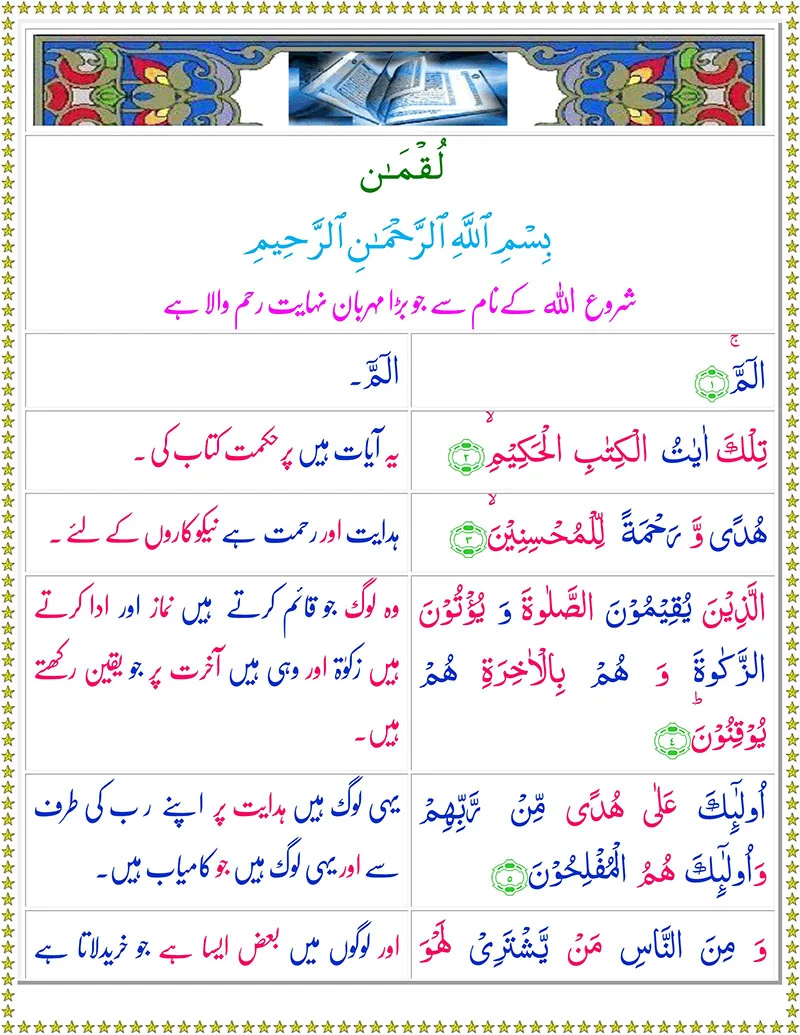 لُقْمَـٰن
بِسْمِ ٱللَّهِ ٱلرَّحْمَـٰنِ ٱلرَّحِيمِ
شروع اللہ کے نام سے جو بڑا مہربان نہایت رحم والا ہے
الٓمّٓ ۚ ﴿۱﴾
الٓمّٓ۔
تِلْكَ اٰیٰتُ الْكِتٰبِ الْحَكِیْمِۙ ﴿۲﴾
یہ آیات ہیں پر حکمت کتاب کی ۔
هُدًى وَّ رَحْمَةً لِّلْمُحْسِنِیْنَۙ ﴿۳﴾
ہدایت اور رحمت ہے نیکوکاروں کے لئے ۔
الَّذِیْنَ یُقِیْمُوْنَ الصَّلٰوةَ وَ یُؤْتُوْنَ
الزَّكٰوةَ وَ هُمْ بِالْاٰخِرَةِ هُمْ
یُوْقِنُوْنَؕ ﴿٤﴾
وہ لوگ جو قائم کرتے ہیں نماز اور ادا کرتے
ہیں زکوٰۃ اور وہی ہیں آخرت پر جو یقین رکھتے
ہیں۔
اُولٰٓىِٕكَ عَلٰى هُدًى مِّنْ رَّبِّهِمْ
وَاُولٰٓىِٕكَ هُمُ الْمُفْلِحُوْنَ ﴿٥﴾
یہی لوگ ہیں ہدایت پر اپنے رب کی طرف
سے اور یہی لوگ ہیں جو کامیاب ہیں۔
وَ مِنَ النَّاسِ مَنْ یَّشْتَرِیْ لَهْوَ
اور لوگوں میں بعض ایسا ہے جو خرید لاتا ہے